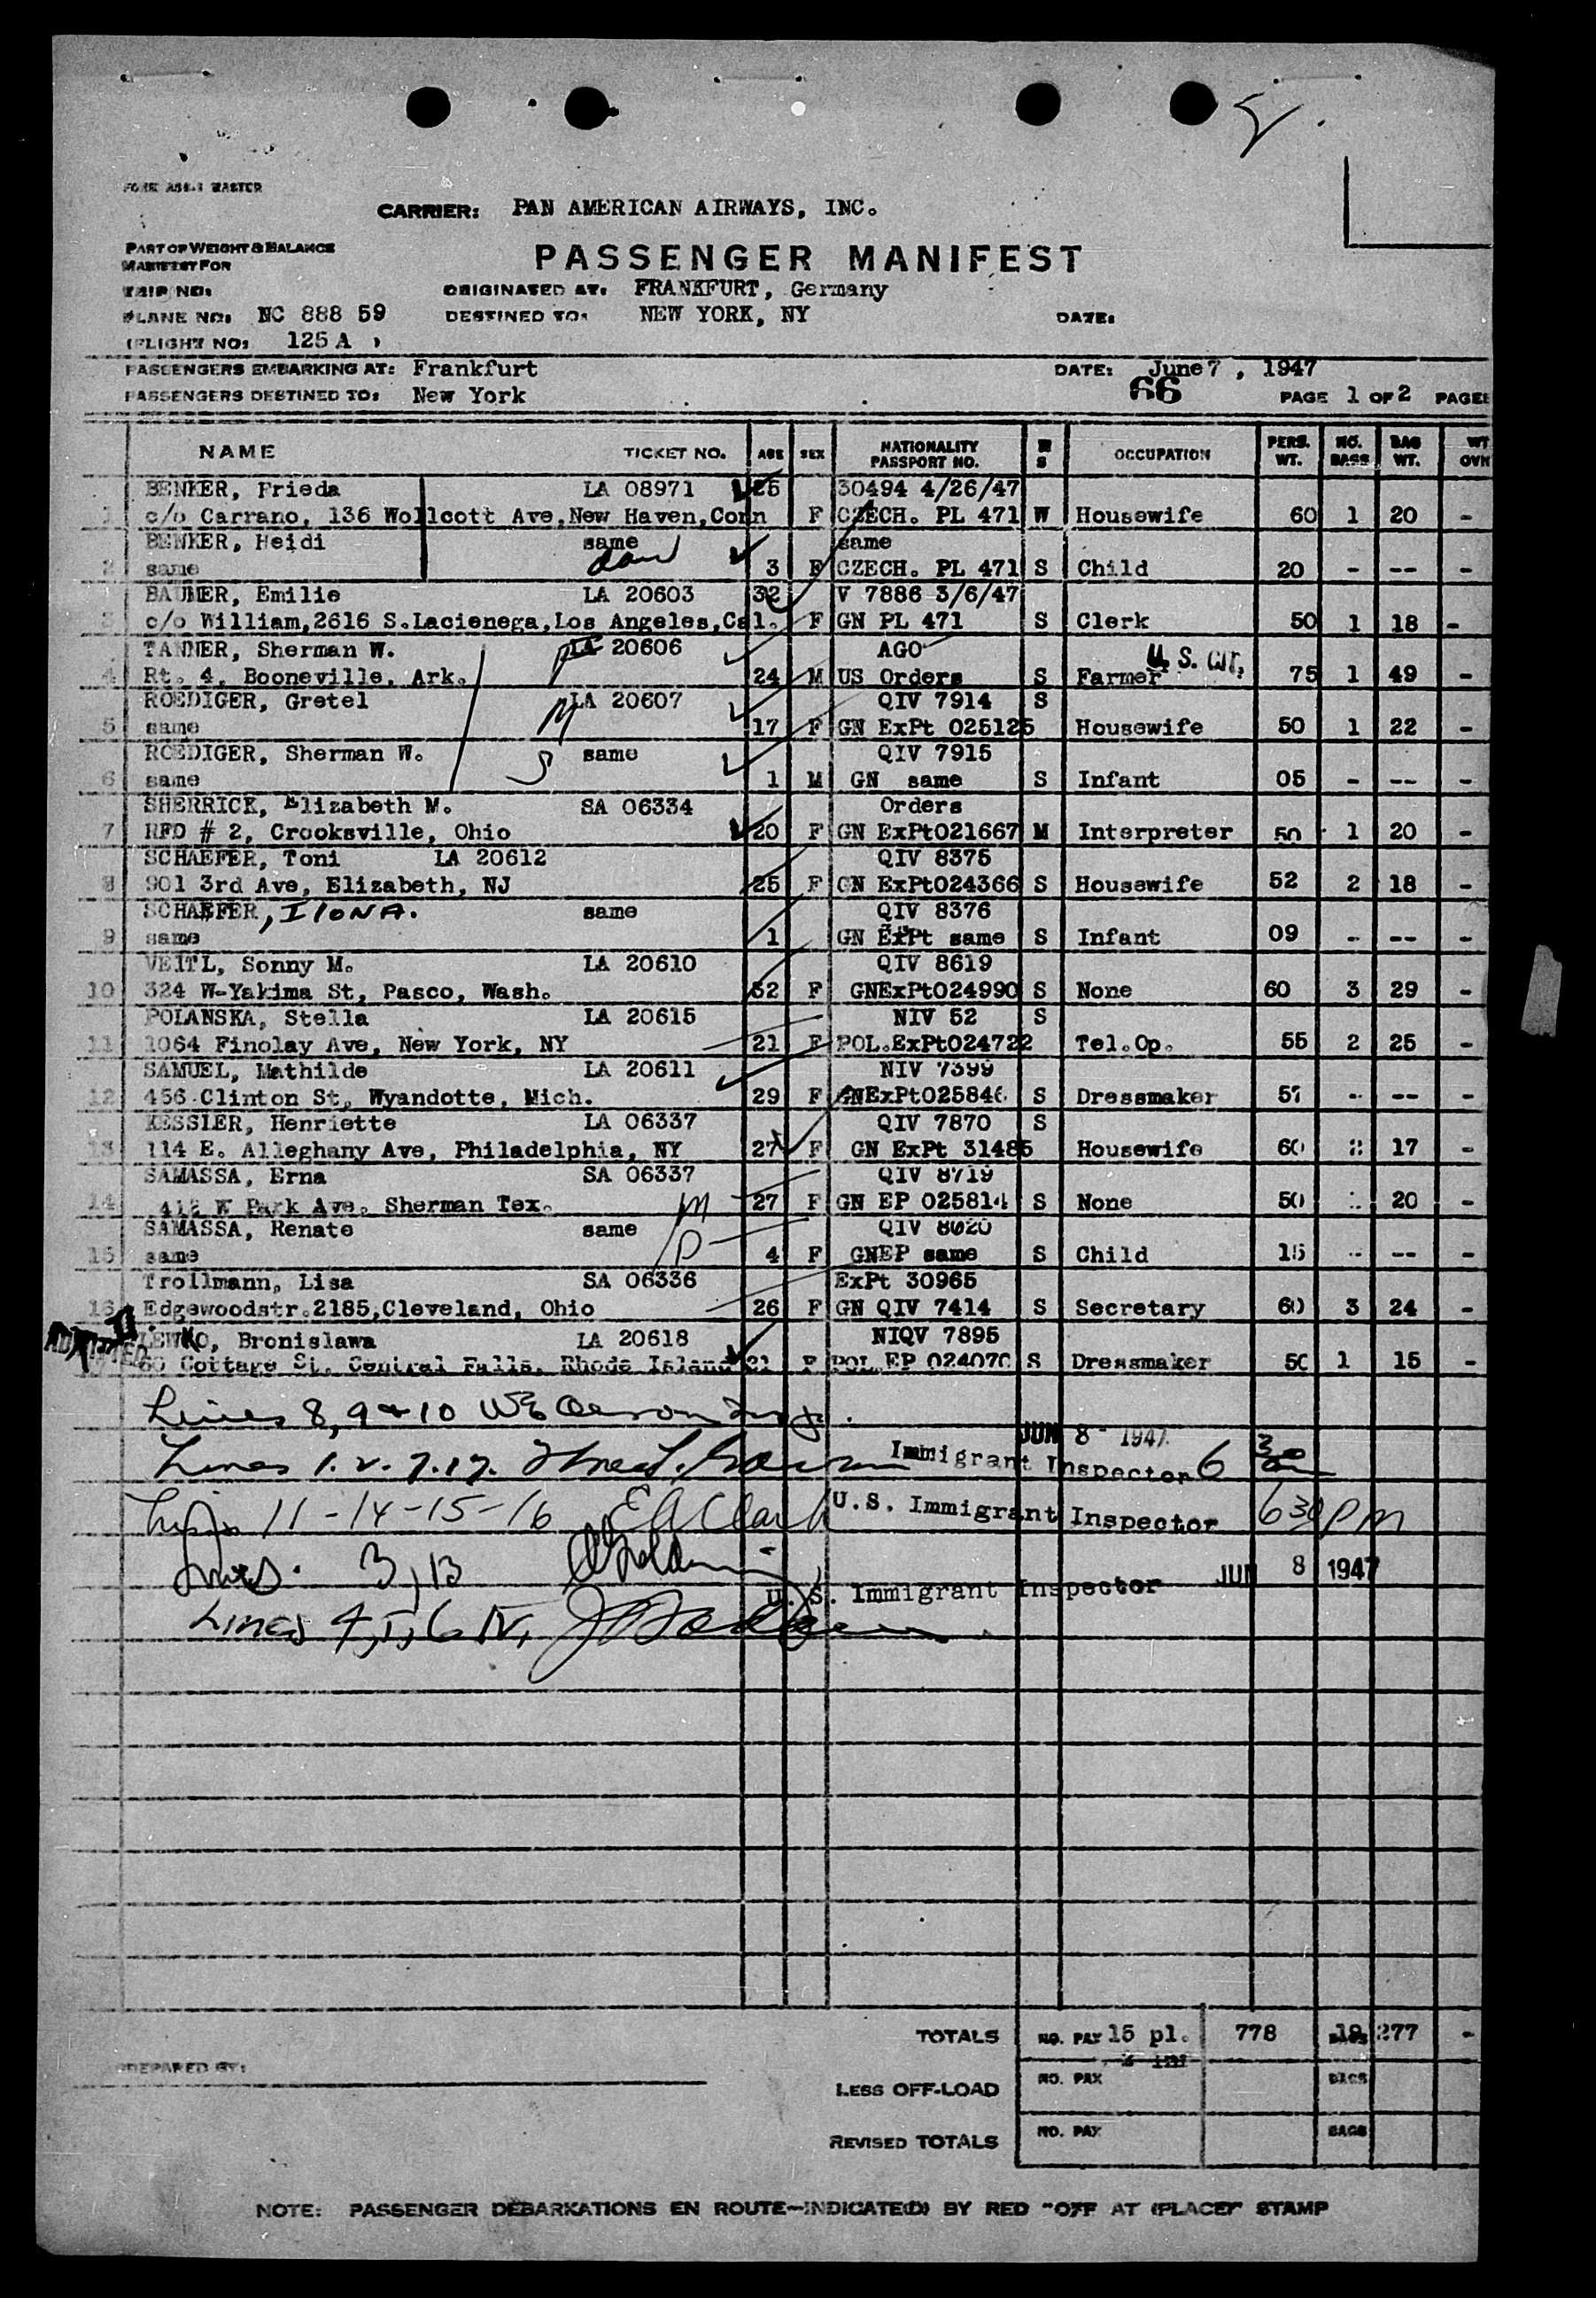 CARRIER: PAN AMERICAN AIRWAYS, INC.
PART OF WEIGHT & BALANCE
MANIFEST FOR
PASSENGER MANIFEST
TRIP NO:
ORIGINATED AT: FRANKFURT, Germany
PLANE NO: NC 888 59
DESTINED TO: NEW YORK, NY
DATE:
FLIGHT NO: 125 A
PASSENGERS EMBARKING AT: Frankfurt
DATE: June 7, 1947
66
PASSENGERS DESTINED TO: New York
PAGE 1 OF 2 PAGES
NAME TICKET NO. AGE SEX NATIONALITY PASSPORT NO. M S OCCUPATION PERS. WT. NO. BAGS BAG WT. WT OVR
BENKER, Frieda LA 08971 25 30494 4/26/47
1 c/o Carrano, 136 Wollcott Ave, New Haven, Conn F CZECH. PL 471 W Housewife 60 1 20 -
BENKER, Heidi same same
2 same 3 F CZECH. PL 471 S Child 20 - -- -
BAUMER, Emilie LA 20603 32 V 7886 3/6/47
3 c/o William, 2616 S.Lacienega, Los Angeles, Cal. F GN PL 471 S Clerk 50 1 18 -
TANNER, Sherman W. LA 20606 AGO U.S. Cit.
4 Rt. 4, Booneville, Ark. 24 M US Orders S Farmer 75 1 49 -
ROEDIGER, Gretel LA 20607 QIV 7914 S
5 same 17 F GN ExPt 025125 Housewife 50 1 22 -
ROEDIGER, Sherman W. same QIV 7915
6 same 1 M GN same S Infant 05 - -- -
SHERRICK, Elizabeth M. SA 06334 Orders
7 RFD # 2, Crooksville, Ohio 20 F GN ExPt021667 M Interpreter 50 1 20 -
SCHAEFER, Toni LA 20612 QIV 8375
8 901 3rd Ave, Elizabeth, NJ 25 F GN ExPt024366 S Housewife 52 2 18 -
SCHAEFER, ILONA. same QIV 8376
9 same 1 GN ExPt same S Infant 09 - -- -
VEITL, Sonny M. LA 20610 QIV 8619
10 324 W-Yakima St, Pasco, Wash. 52 F GNExPt024990 S None 60 3 29 -
POLANSKA, Stella LA 20615 NIV 52 S
11 1064 Finolay Ave, New York, NY 21 F POL.ExPt024722 Tel.Op. 55 2 25 -
SAMUEL, Mathilde LA 20611 NIV 7399
12 456 Clinton St, Wyandotte, Mich. 29 F GNExPt025846 S Dressmaker 57 - -- -
KESSLER, Henriette LA 06337 QIV 7870 S
13 114 E. Alleghany Ave, Philadelphia, NY 27 F GN ExPt 31485 Housewife 60 2 17 -
SAMASSA, Erna SA 06337 QIV 8719
14 412 W Park Ave. Sherman Tex. 27 F GN EP 025814 S None 50 20 -
SAMASSA, Renate same QIV 8020
15 same 4 F GNEP same S Child 15 - -- -
Trollmann, Lisa SA 06336 ExPt 30965
16 Edgewoodstr.2185,Cleveland, Ohio 26 F GN QIV 7414 S Secretary 60 3 24 -
ADMITTED
LEWKO, Bronislawa LA 20618 NIQV 7895
60 Cottage St. Central Falls, Rhode Island 21 F POL EP 024070 S Dressmaker 50 1 15 -
Lines 8, 9 & 10
JUN 8 - 1947
Lines 1. 2. 7. 17. Immigrant Inspector 6 30
11-14-15-16 EA Clark U.S. Immigrant Inspector 630 PM
Lines. 3, 13 JUN 8 1947
U. S. Immigrant Inspector
Lines 4, 5, 6 12,
TOTALS NO. PAX 15 pl. 778 19 BAGS 277 -
PREPARED BY:
LESS OFF-LOAD NO. PAX BAGS
REVISED TOTALS NO. PAX BAGS
NOTE: PASSENGER DEBARKATIONS EN ROUTE—INDICATE(D) BY RED "OFF AT (PLACE)" STAMP